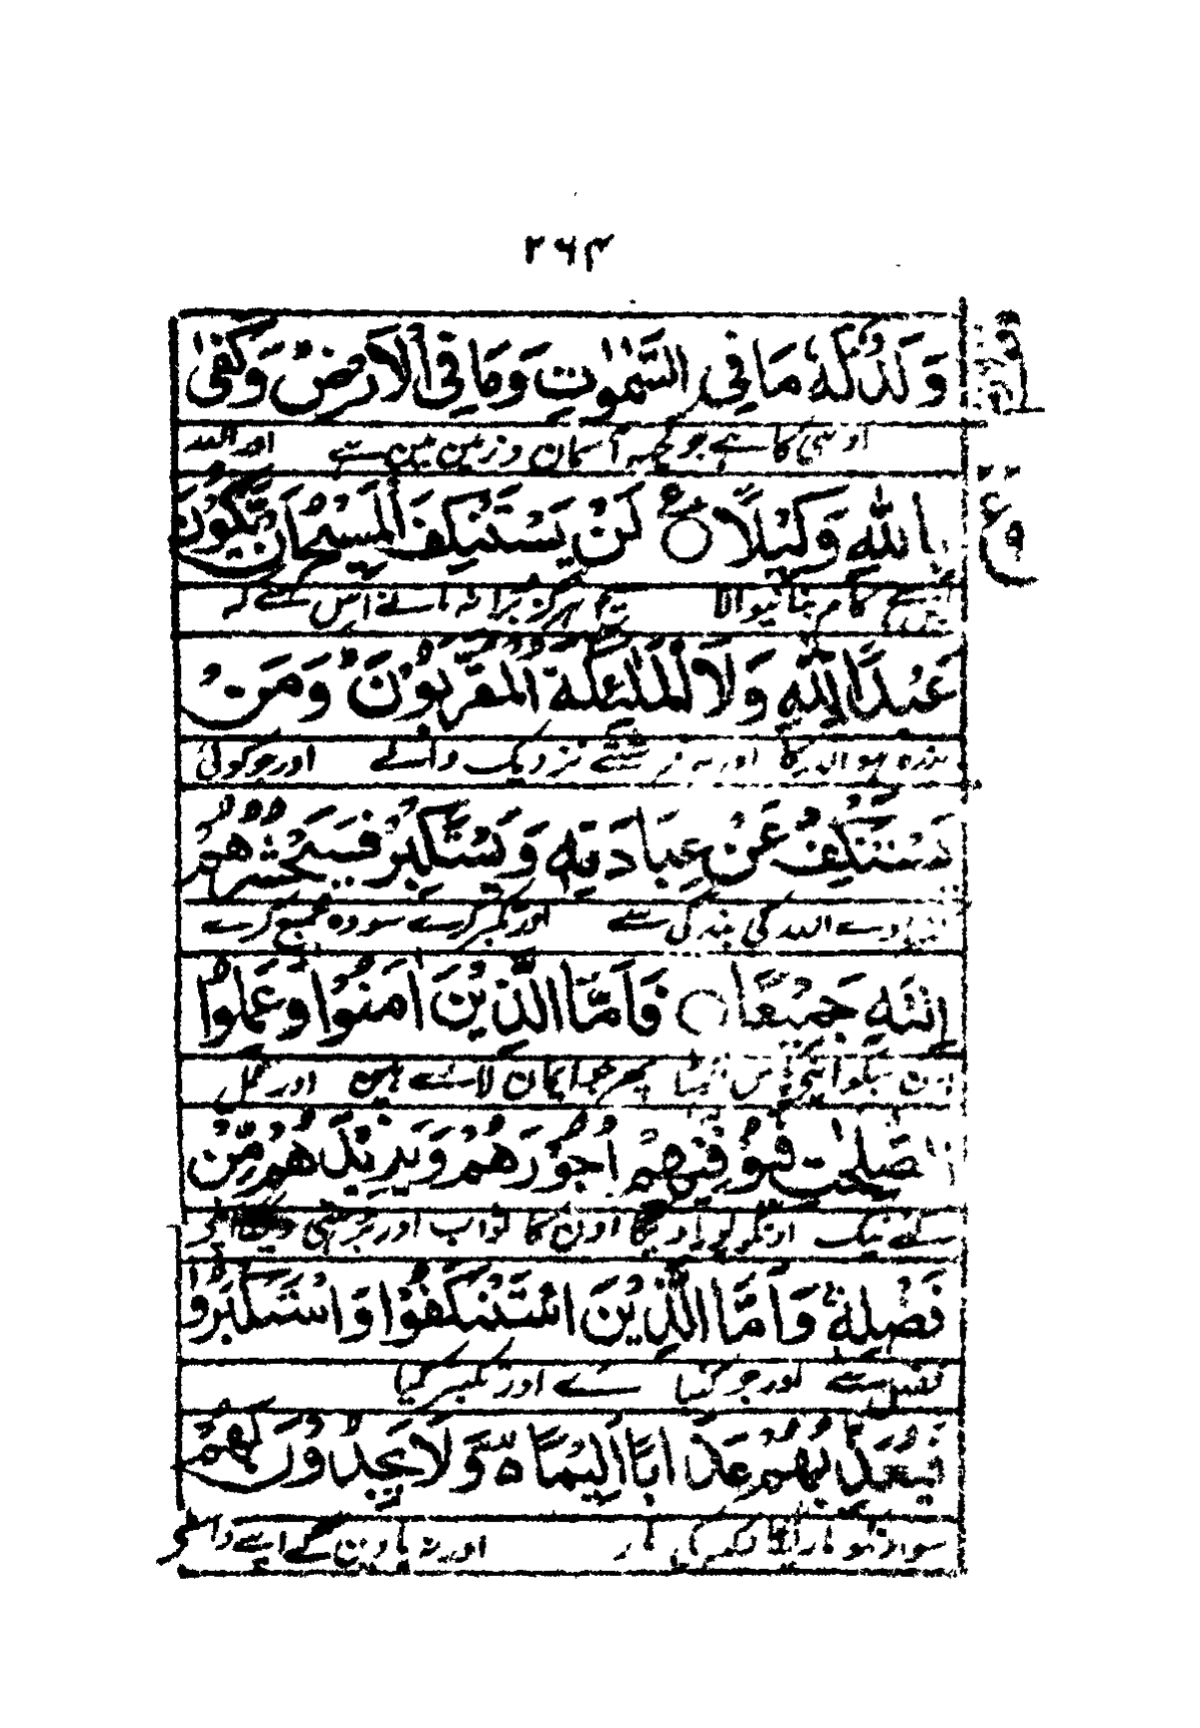 ۲۶۴
وَلَدٌ لَهٗ مَا فِي السَّمٰوٰتِ وَمَا فِي الْاَرْضِ وَكَفٰى
اوسی کا ہے جو کچھ آسمان و زمین مین ہے اور اللہ
بِاللّٰهِ وَكِيْلًا ○ لَنْ يَسْتَنْكِفَ الْمَسِيْحُ اَنْ يَّكُوْنَ
کام بنانیوالا ہرگز برا نہ مانے اس سے کہ
عَبْدًا لِلّٰهِ وَلَا الْمَلٰئِكَةُ الْمُقَرَّبُوْنَ وَمَنْ
بندہ ہو اللہ کا اور نہ فرشتے نزدیک والے اور جو کوئی
يَسْتَنْكِفْ عَنْ عِبَادَتِهٖ وَيَسْتَكْبِرْ فَسَيَحْشُرُهُمْ
اللہ کی بندگی سے اور تکبر کرے سو وہ جمع کرے
اِلَيْهِ جَمِيْعًا ○ فَاَمَّا الَّذِيْنَ اٰمَنُوْا وَعَمِلُوا
پھر جو ایمان لائے ہین اور عمل
الصّٰلِحٰتِ فَيُوَفِّيْهِمْ اُجُوْرَهُمْ وَيَزِيْدُهُمْ مِّنْ
کئے نیک اونکو پورا دیگا اون کا ثواب اور بڑھتی
فَضْلِهٖ وَاَمَّا الَّذِيْنَ اسْتَنْكَفُوْا وَاسْتَكْبَرُوْا
فضل سے اور جو کنیا سے اور تکبر کیا
فَيُعَذِّبُهُمْ عَذَابًا اَلِيْمًا ۙ وَّلَا يَجِدُوْنَ لَهُمْ
سو اونکو ماریگا دکھ کی مار اور نہ پاوین گے اپنے واسطے